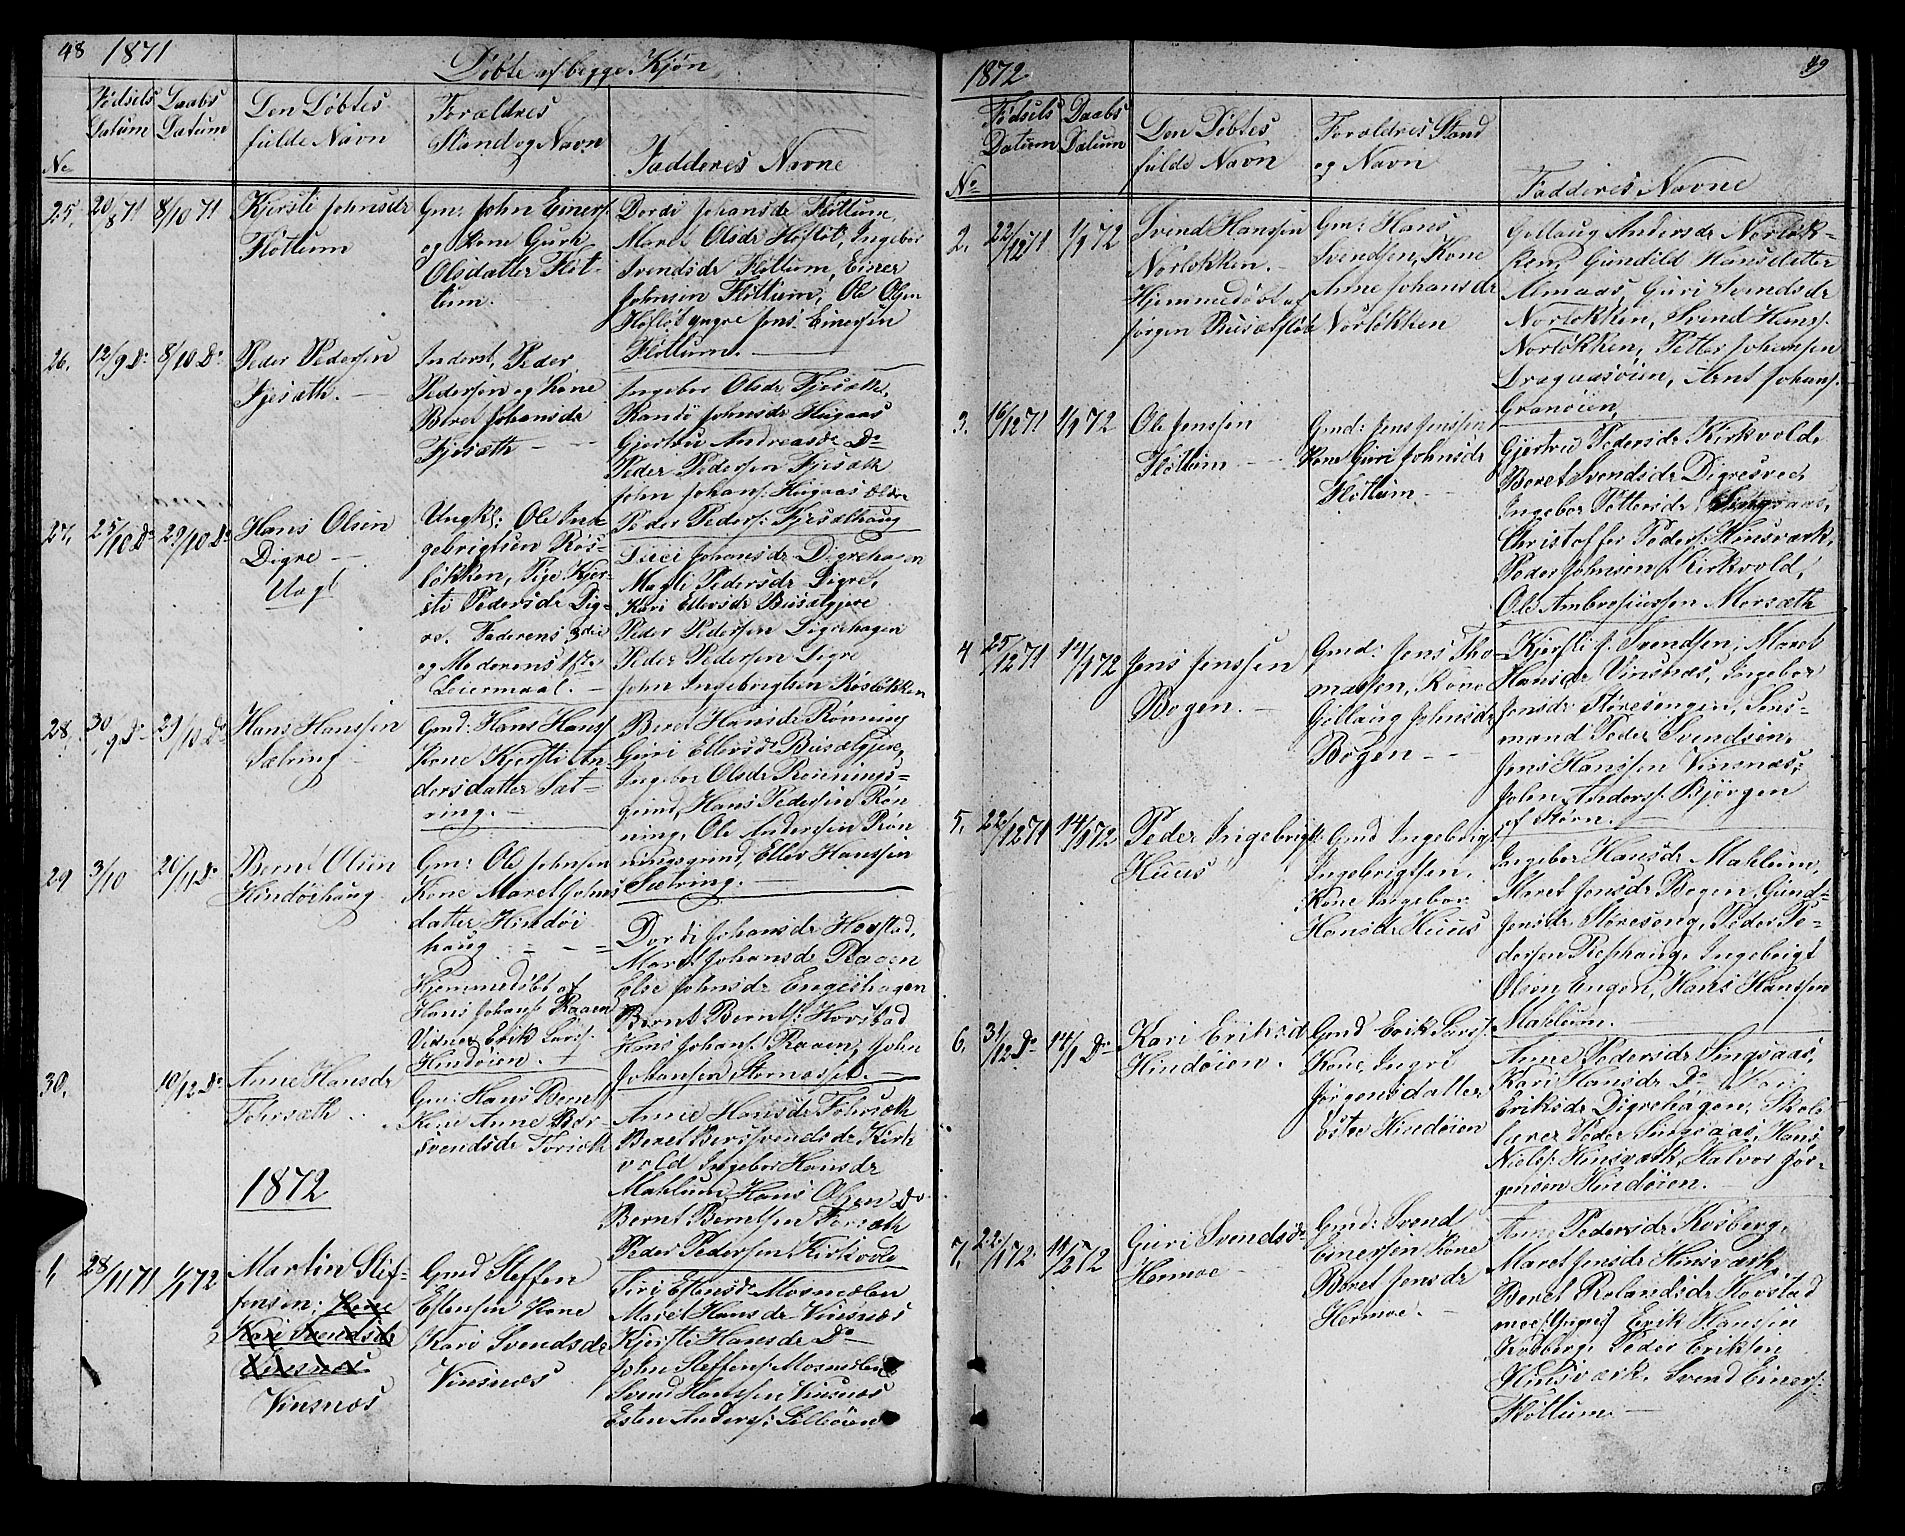 48 1871
Døbte af begge Kjøn
No
Fødsels Datum
Daabs Datum
Den Døbtes fulde Navn
Forældres Stand og Navn
Fadderes Navne
25. 20/8 71 8/10 71
Kjersti Johnsdr
Fløttum
Gm: John Einers.
og Kone Guru
Olsdatter Fløt-
tum.
Dordi Johansdr Fløttum,
Maret Olsdr Høfløt, Ingebor
Svendsdr Fløttum, Einer
Johnsen Fløttum, Ole Olsen
Høfløt yngre Jens Einersen
Fløttum.
26. 12/9 Do 8/10 Do
Peder Pedersen
Fjesæth.
Inderst, Peder
Pedersen og Kone
Beret Johansdr
Fjesæth
Ingebor Olsdr Fjesæth,
Randi Johnsdr Haugaas
Gjertru Andreasdr Do
Peder Pedersen Fjesæth
John Johans. Haugaas ældre
Peder Peders: Fjesæthaug
27. 25/10 Do 29/10 Do
Hans Olsen
Digre
Uægt
Ungkl: Ole Inge
gebrigtsen Ros-
løkken, Pige Kjer-
sti Pedersdr Dig-
re. Faderens 3die
og Moderens 1ste
Leiermaal.
Johansdr Digrehagen
Magli Pedersdr Digre,
Kari Ellersdr Busætgjere
Peder Pedersen Digrehagen
Peder Pedersen Digre
John Ingebrigtsen Rosløkken
28. 30/9 Do 29/10 Do
Hans Hanssen
Sætring
Gmd: Hans Hans.
Kone Kjersti An-
dersdatter Sæt-
ring.
Beret Hansdr Rønning
Guri Ellersdr Busætgjere,
Ingebor Olsdr Rønnings-
grind, Hans Pedersen Røn
ning, Ole Andersen Røn
ningsgrind, Eller Hanssen
Sætring.
29 3/10 26/11 Do
Bernt Olsen
Hindøihaug
Gm: Ole Johnsen
Kone Maret Johns
datter Hindøi
haug
Hjemmedøbt af
Hans Johans. Raaen
Vidner Erik Lars.
Hindøien.
Dordi Johansdr Hovstad,
Maret Johansdr Raaen
Else Johnsdr Engeshagen
Bernt Bernts: Hovstad
Hans Johans. Raaen, John
Johansen Stornæsset.
30. 10/12 Do
Anne Hansdr
Forsæth
Gm: Hans Bernts
Kone Anne Ber-
svendsdr Forsæth
Anne Hansdr Forsæth
Beret Bersvendsdr Kirk
vold Ingebor Hansdr
Mahlum, Hans Olsen Do
Bernt Berntsen Forsæth
Peder Pedersen Kirkvold
1872
1, 28/11 71 1/1 72
Martin Stef-
fensen, Kone
Kari Svendsdr
Vinsnæs
Vinsnæs
Gmd Steffen
Estensen Kone
Kari Svendsdr
Vinsnæs
Siri Estensdr Mosmælen
Maret Hansdr Vinsnæs
Kjersti Hansdr Do
John Steffens. Mosmælen
Svend Hanssen Vinsnæs
Esten Anders: Lilleøien
1872
49
No
Fødsels Datum
Daabs Datum
Den Døbtes fulde Navn
Forældres Stand og Navn
Fadderes Navne
2. 22/12 71 1/1 72
Svend Hanssen
Norløkken.
Hjemmedøbt af
Jørgen Busætfløt
Gm: Hans
Svendsen, Kone
Anne Johansdr
Norløkken
Gollaug Andersdr Norløk-
ken, Gunild Hansdatter
Almaas, Guri Svendsdr
Norløkken, Svend Hans.
Norløkken, Petter Johansen
Dragaasøien, Arnt Johans.
Granøien,
3. 16/12 71 1/1 72
Ole Jenssen
Fløttum
Gmd: Jens Jenssen
Kone Guri Johnsdr
Fløttum
Gjertrud Pedersdr Kirkvold,
Beret Svendsdr Digresved
Ingebor Pettersdr Singsaas,
Christoffer Peders. Hinsværk,
Peder Johnsen Kirkvold,
Ole Ambrosiussen Morsæth
4 25/12 71 14/1 72
Jens Jenssen
Bogen.
Gmd: Jens Tho-
massen, Kone
Gollaug Johnsdr
Bogen
Kjersti J. Svendsen, Maret
Hansdr Vinsnæs, Ingebor
Jonsdr Støresengen, Lens-
mand Peder Svendsen,
Jens Hanssen Vinsnæs,
John Anders. Bjørgen
af Støren.
5. 22/12 71 14/1 72
Peder Ingebrigts.
Huus
Gmd Ingebrigt
Ingebrigtsen,
Kone Ingebor
Hansdr Huus
Ingebor Hansdr Mahlum,
Maret Jensdr Bogen, Gund-
Jonsdr Størseng, Peder Pe-
dersen Ingebrigt
Olsen Engen, Hans Hanssen
Mahlum.
6. 31/12 Do 14/1 Do
Kari Eriksd
Hindøien.
Gmd Erik Lars.
Kone Ingri
Jørgensdatter
østre Hindøien
Anne Pedersdr Singsaas,
Kari Hansdr Do Kari
Eriksdr Digrehagen, Skole
lærer Peder Singsaas, Hans
Niels. Hinsværk, Halvor Jør-
gensen Hindøien.
7, 22/1 72 11/2 72
Guri Svendsdr
Hermoe
Gmd: Svend
Einersen Kone
Beret Jensdr
Hermoe.
Ane Pedersdr Kosberg,
Maret Jensdr Hinsværk,
Beret Rolandsdr Hovstad
moe (yngre) Erik Hanssen
Kosberg, Peder Eriksen
Husværk, Svend Einers.
Fløttum